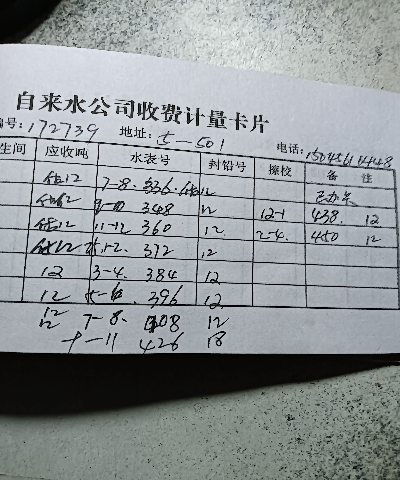 自来水公司收费计量卡片
编号:172739 地址:5-501 电话:
生间 应收吨 水表号 封铅号 擦校 备 注
12 7-8. 336. 12
12 9-10 348 12 12-1 438. 12
12 11-12 360 12 2-4. 450 12
12 1-2. 372 12
12 3-4. 384 12
12 5-6 396 12
12 7-8. 408 12
426 18